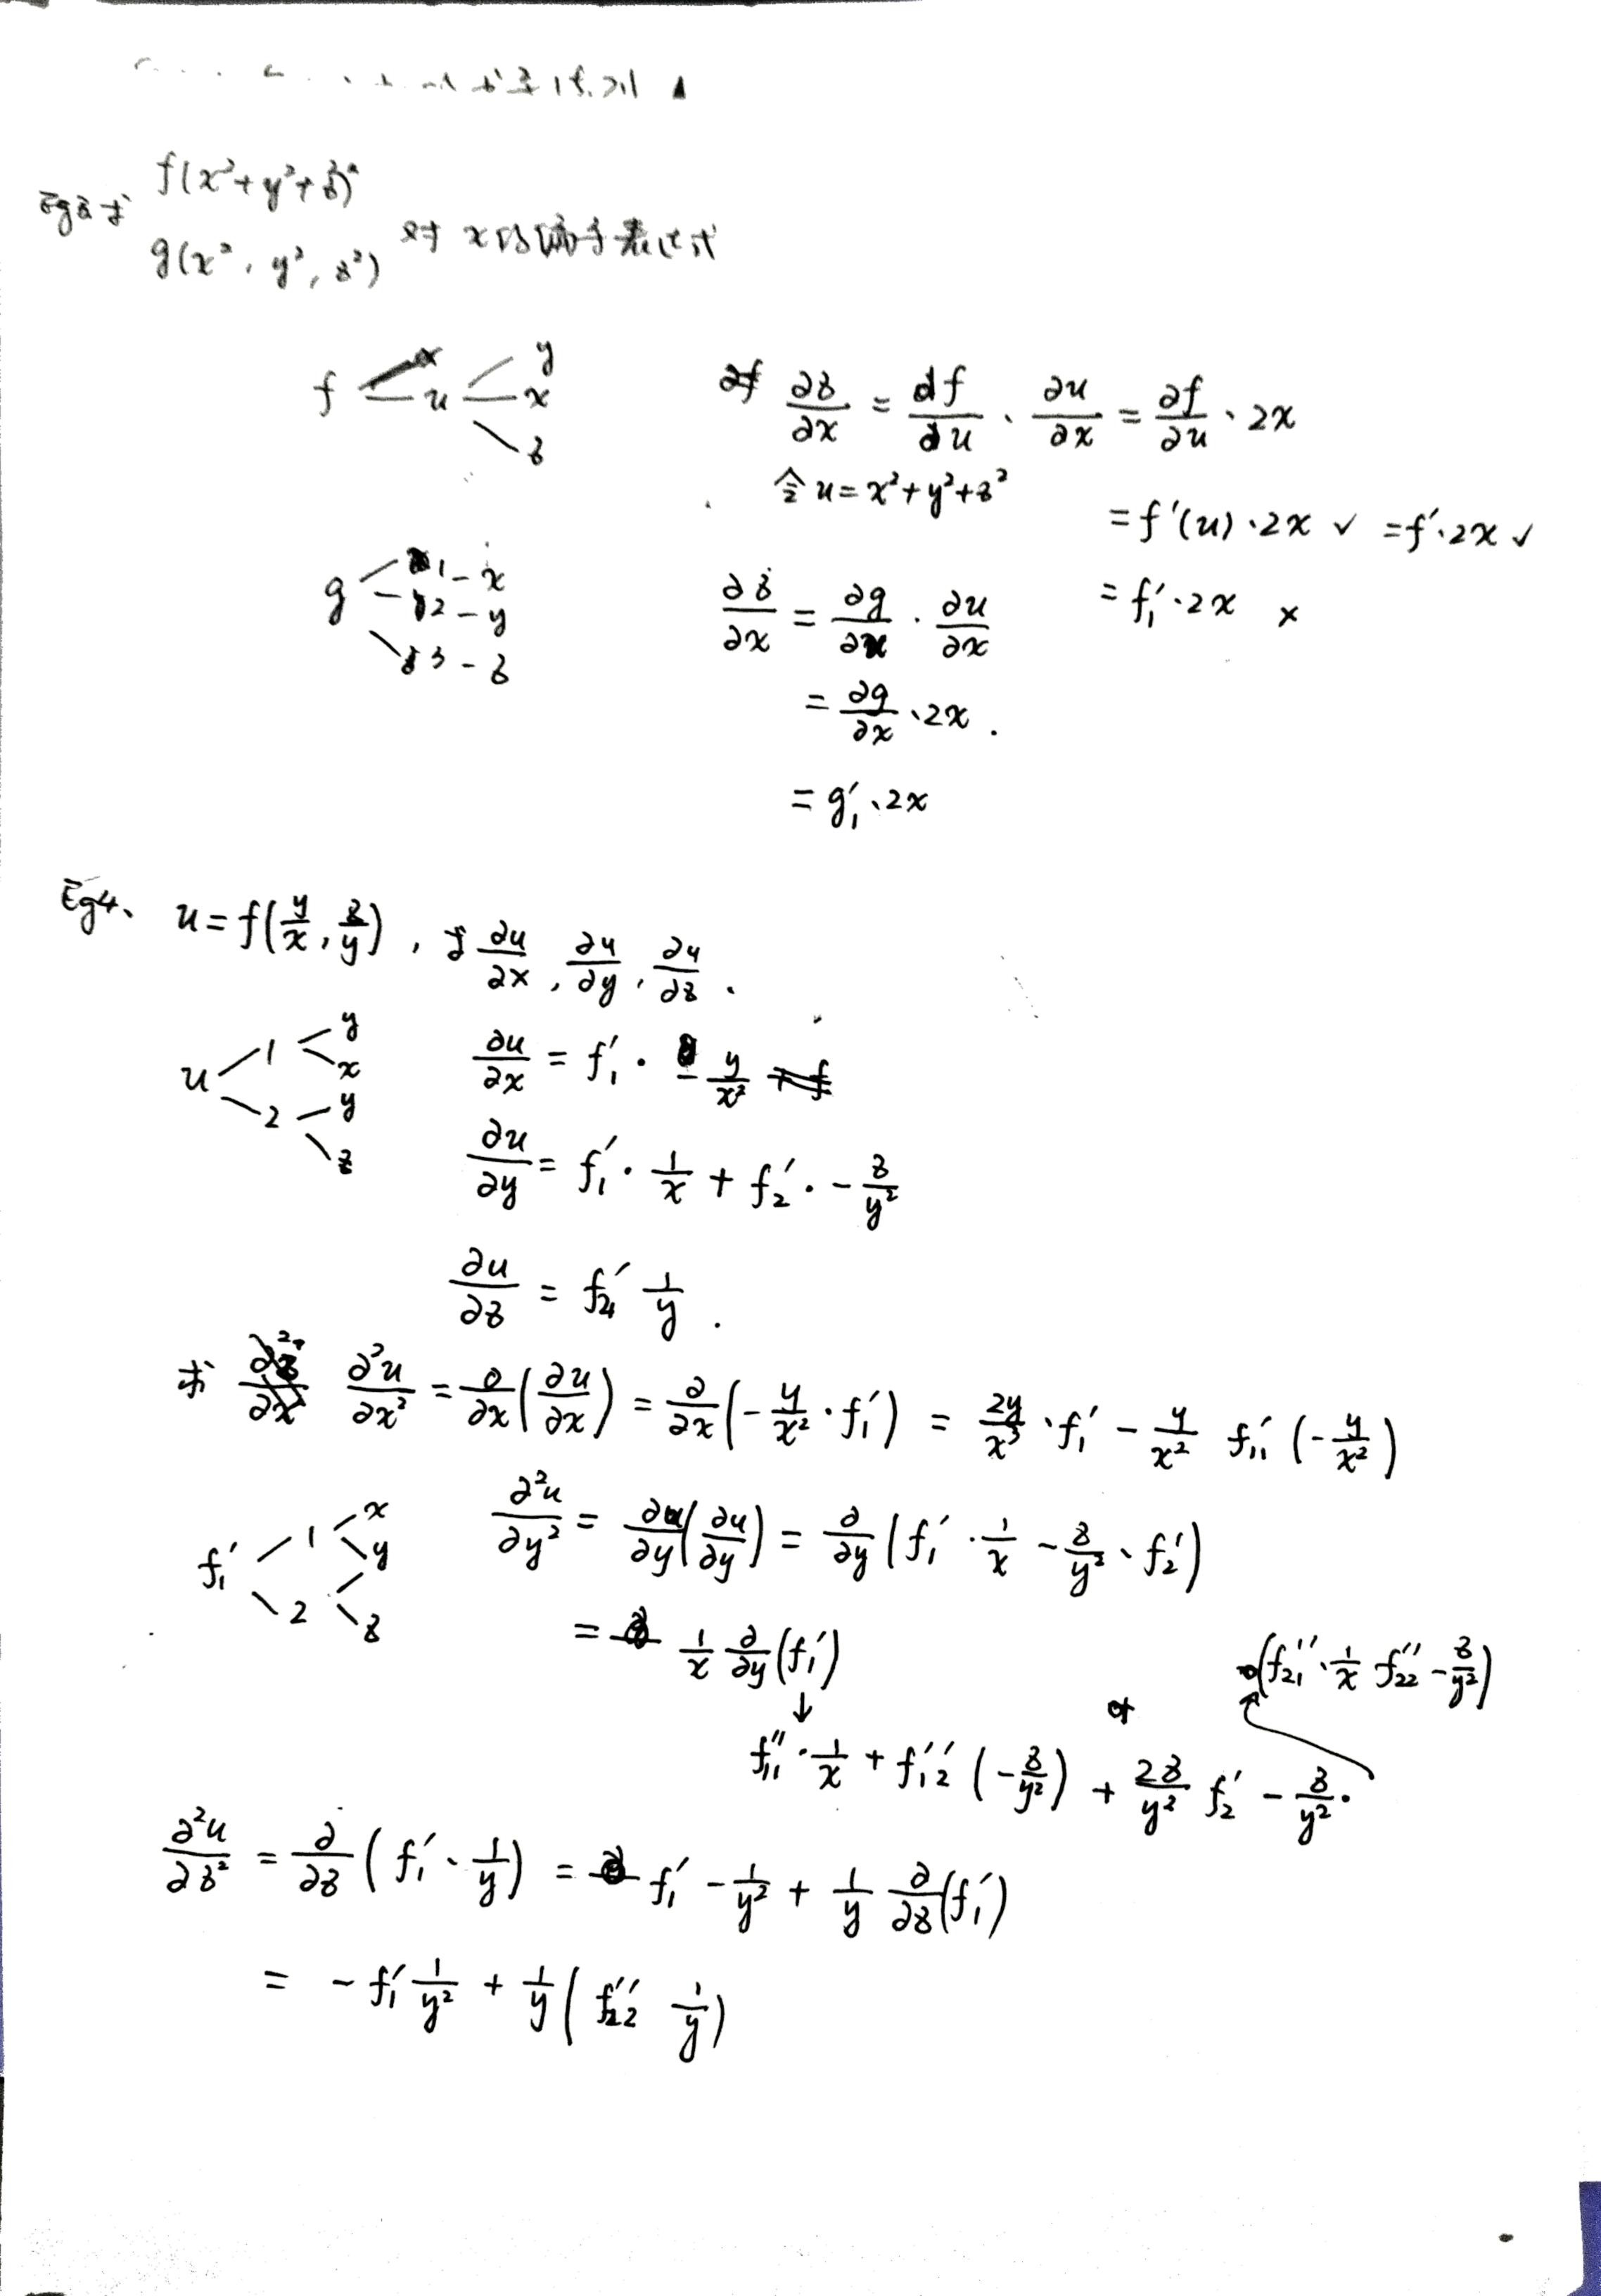 Eg3 求 f(x²+y²+z²)
g(x², y², z²) 对 x 的偏导表达式
f u y x z
∂z/∂x = df/du · ∂u/∂x = ∂f/∂u · 2x
令 u = x²+y²+z²
= f'(u)·2x ✓ = f'·2x ✓
= f₁'·2x ×
g 1 - x
2 - y
3 - z
∂z/∂x = ∂g/∂u · ∂u/∂x
= ∂g/∂x · 2x.
= g₁'·2x
Eg4、 u = f(y/x, z/y), 求 ∂u/∂x, ∂u/∂y, ∂u/∂z.
u 1 y x
2 y z
∂u/∂x = f₁' · - y/x²
∂u/∂y = f₁' · 1/x + f₂' · - z/y²
∂u/∂z = f₂' 1/y.
求 ∂²u/∂x² = ∂/∂x (∂u/∂x) = ∂/∂x (- y/x² · f₁') = 2y/x³ · f₁' - y/x² f₁₁'' (- y/x²)
f₁' 1 x y
2 z
∂²u/∂y² = ∂/∂y (∂u/∂y) = ∂/∂y (f₁' · 1/x - z/y² · f₂')
= 1/x ∂/∂y (f₁')
↓
(f₂₁'' · 1/x f₂₂'' - z/y²)
f₁₁'' · 1/x + f₁₂'' (- z/y²) + 2z/y² f₂' - z/y² ·
∂²u/∂z² = ∂/∂z (f₁' · 1/y) = f₁' - 1/y² + 1/y ∂/∂z (f₁')
= - f₁' 1/y² + 1/y (f₂₂'' 1/y)